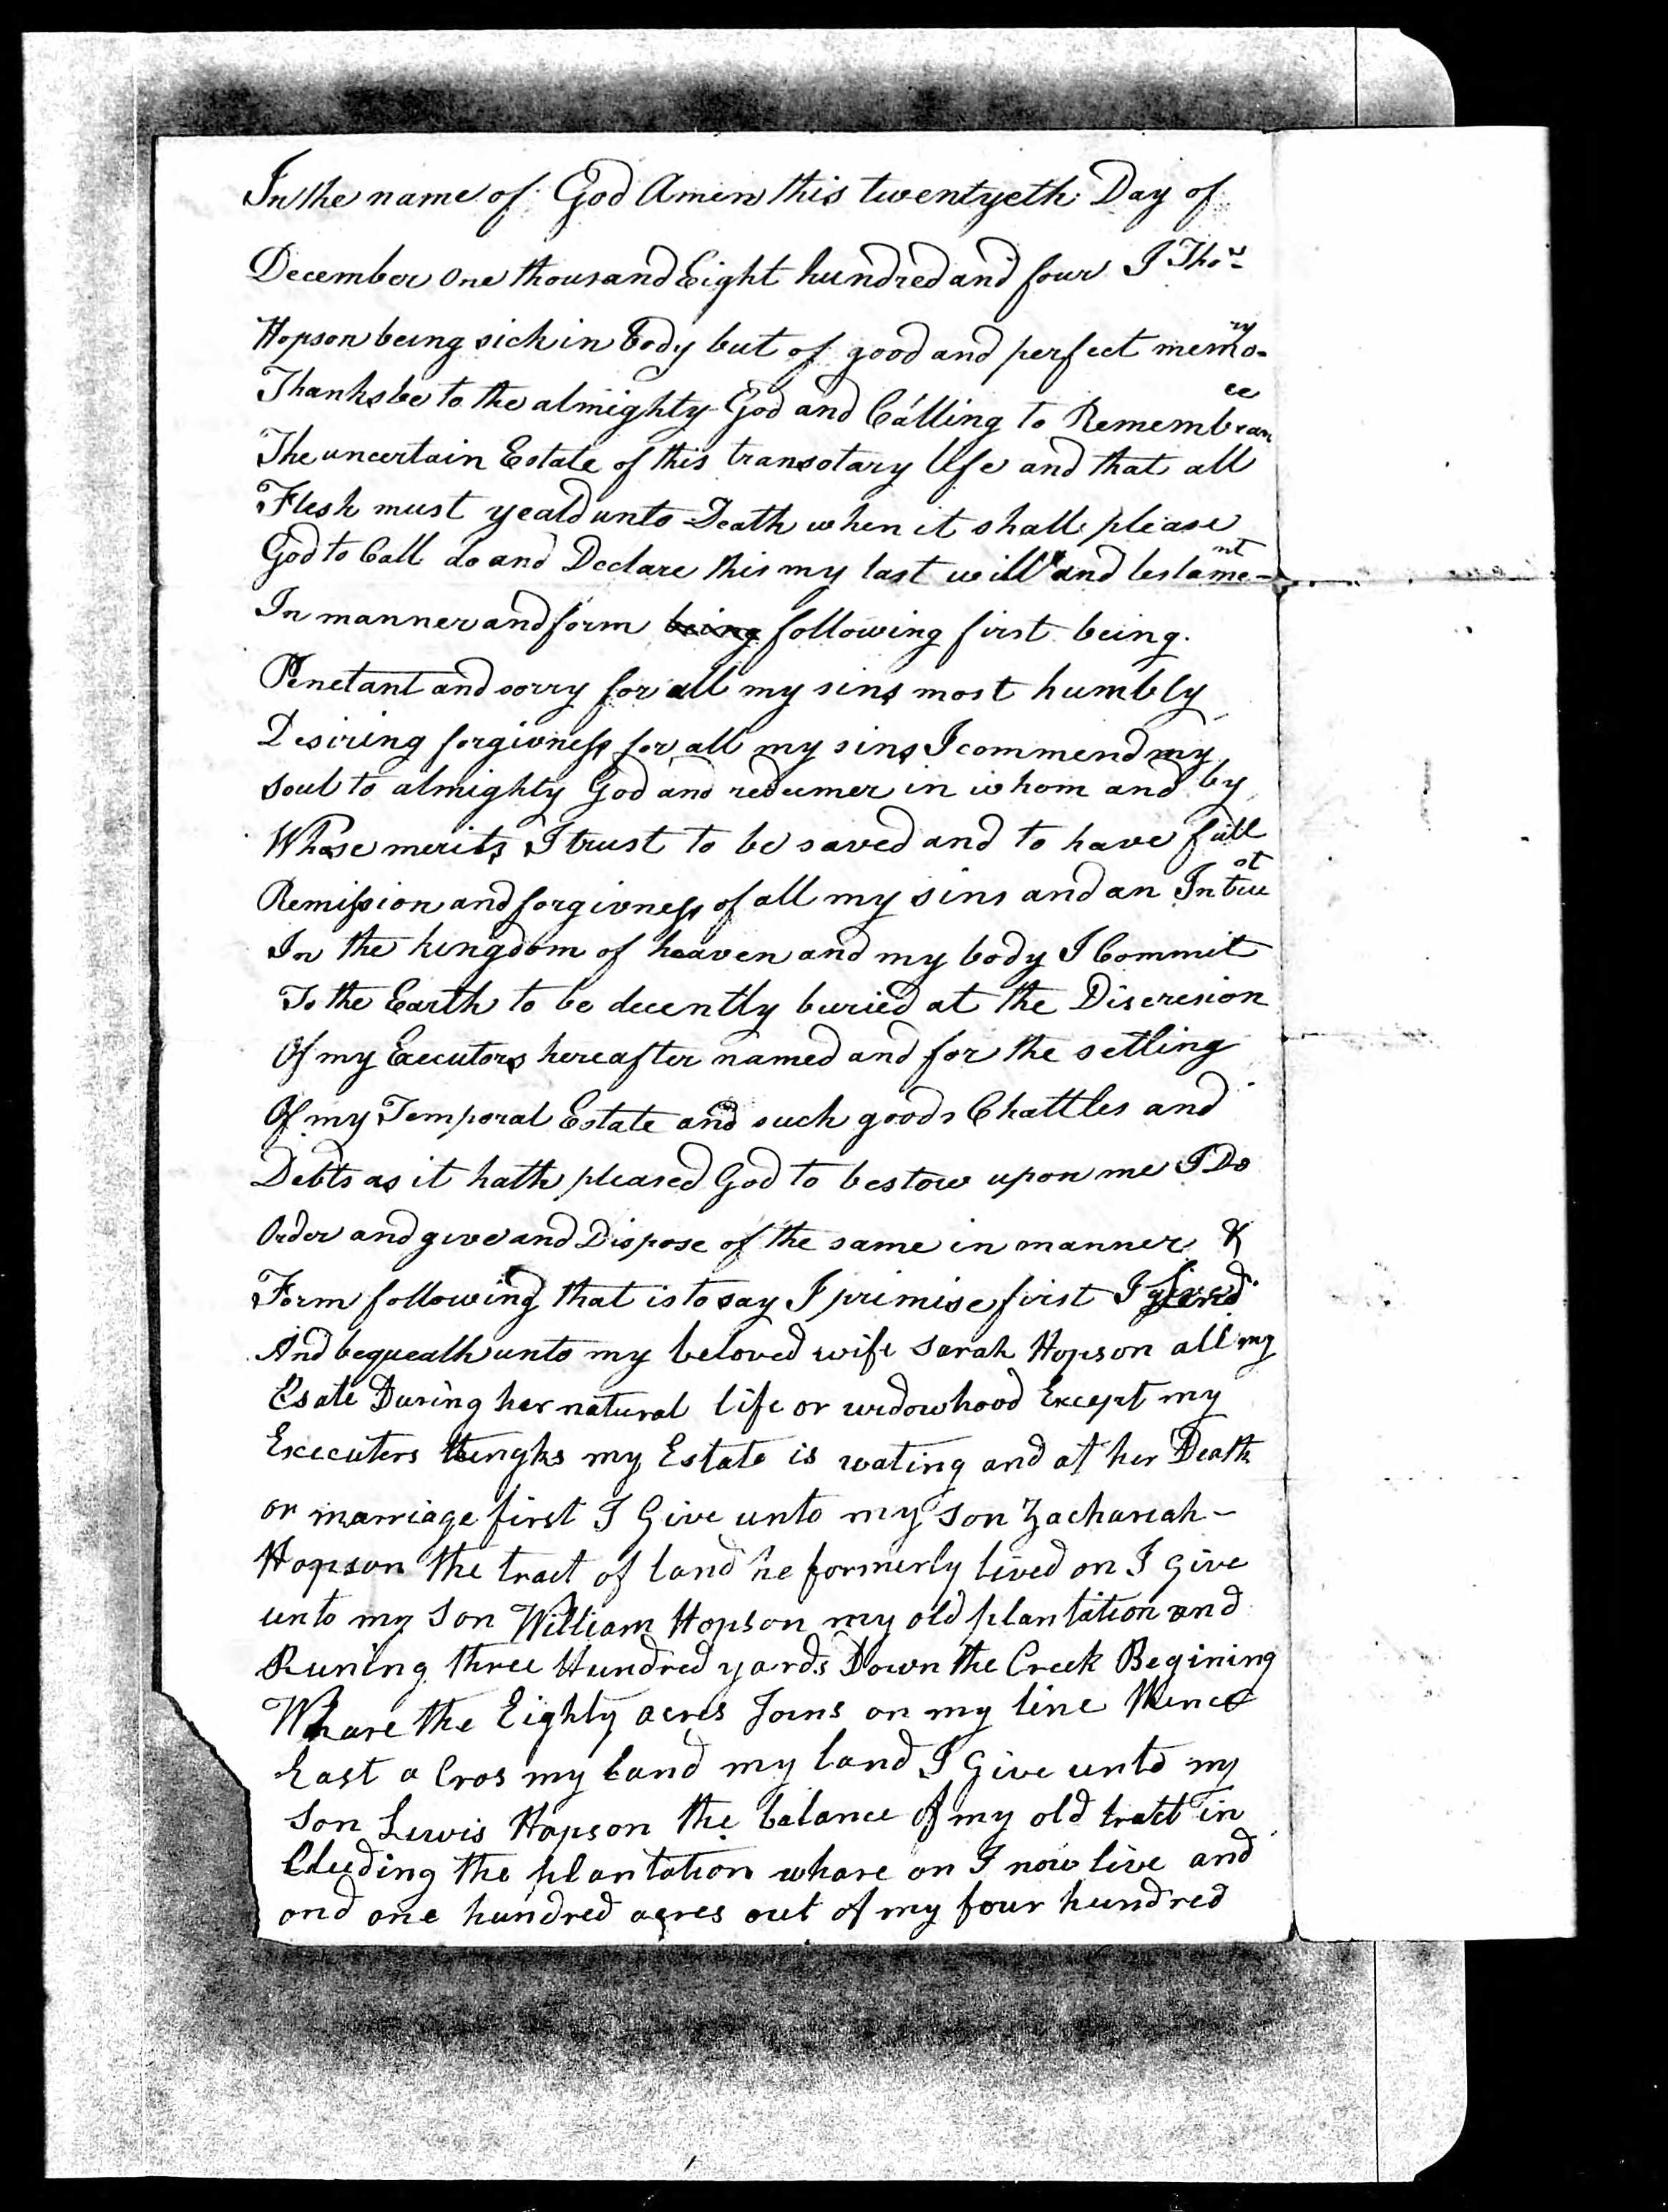 In the name of God Amen this twentyeth Day of
December One thousand Eight hundred and four I Thos
Hopson being sick in body but of good and perfect memory
Thanks be to the almighty God and Calling to Remembrance
The uncertain Estate of this transotary life and that all
Flesh must yeald unto Death when it shall please
God to Call do and Declare this my last will and testament
In manner and form being following first being
Penetant and sorry for all my sins most humbly
Desiring forgivness for all my sins I commend my
Soul to almighty God and redeemer in whom and by
Whose merits I trust to be saved and to have full
Remission and forgivness of all my sins and an
In the kingdom of heaven and my body I Commit
To the Earth to be decently buried at the Discresion
Of my Executors hereafter named and for the setling
Of my Temporal Estate and such goods Chattles and
Debts as it hath pleased God to bestow upon me I Do
Order and give and Dispose of the same in manner &
Form following that is to say I primise first I
And bequeath unto my beloved wife Sarah Hopson all my
Esate During her natural life or widowhood Except my
Executers thinghs my Estate is wating and at her Death
or marriage first I Give unto my Son Zachariah -
Hopson the tract of land he formerly lived on I Give
unto my Son William Hopson my old plantation and
Runing three Hundred yards Down the Creek Begining
Whare the Eighty acres Joins on my line thence
East a Cros my land my land I Give unto my
Son Lewis Hopson the balance of my old tratt in
Cluding the plantation whare on I now live and
and one hundred acres out of my four hundred